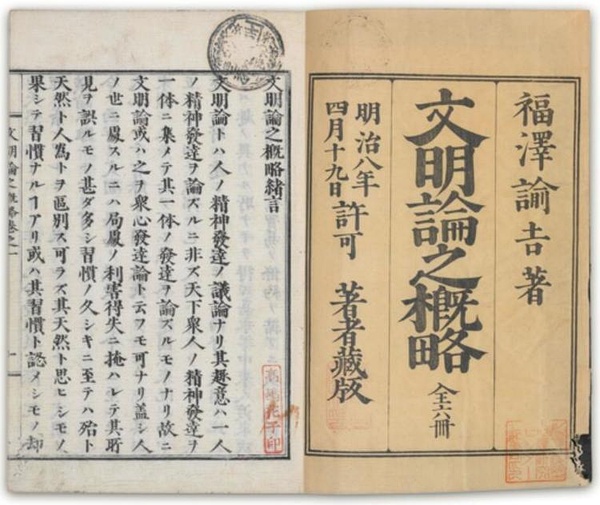 福澤諭吉著
文明論之概略 全六冊
明治八年
四月十九日許可
著者藏版
文明論之概略緒言
文明論トハ人ノ精神發達ノ議論ナリ其趣意ハ一人
ノ精神發達ヲ論ズルニ非ズ天下衆人ノ精神發達ヲ
一体ニ集メテ其一体ノ發達ヲ論ズルモノナリ故ニ
文明論或ハ之ヲ衆心發達論ト云フモ可ナリ蓋シ人
ノ世ニ處スルニハ局處ノ利害得失ニ掩ハレテ其所
見ヲ誤ルモノ甚ダ多シ習慣ノ久シキニ至テハ殆ト
天然ト人爲トヲ區別ス可ラズ其天然ト思ヒシモノ
果シテ習慣ナルヿアリ或ハ其習慣ト認メシモノ却
文明論之概略卷之一 一